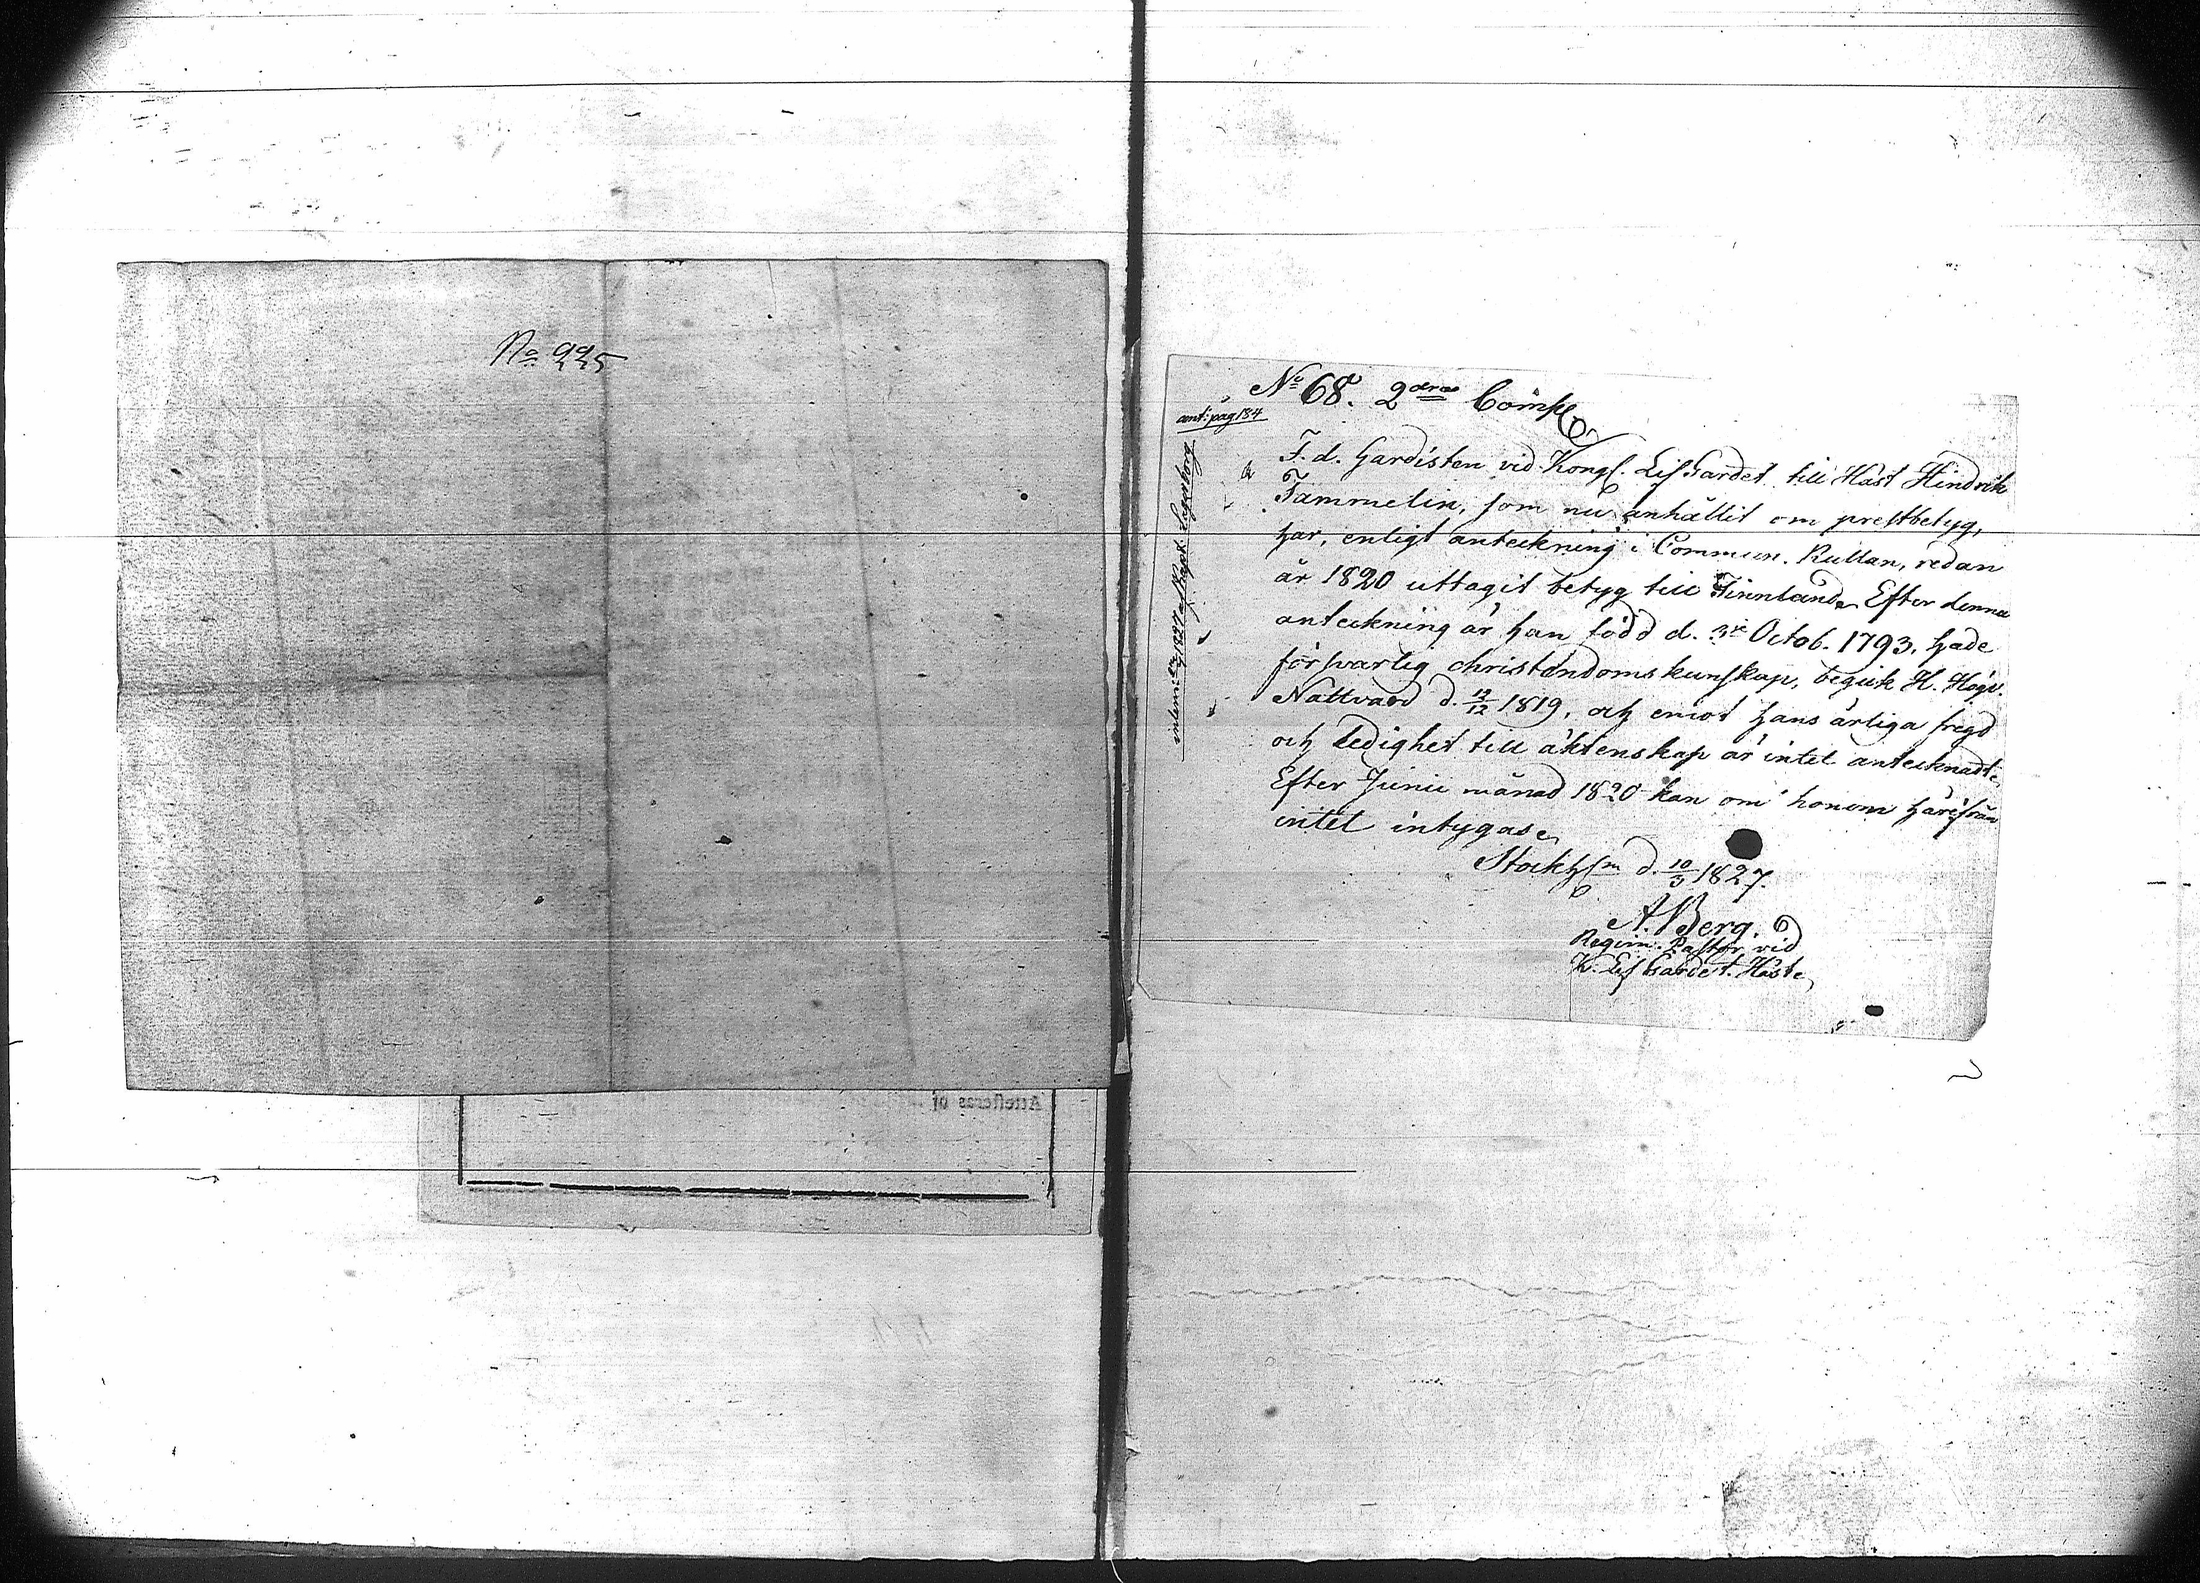 No 995
Attesteras of
No 68. 2dra Comp
ant: pag 184
F. d. Gardisten vid Kongl. Lif Gardet till Häst Hindrik
Tammelin, som nu anhållit om prestbetyg,
har, enligt anteckning i Commun. Rullan, redan
år 1820 uttagit betyg till Finnland. Efter denna
anteckning är han född d. 3je Octob. 1793, hade
försvarlig christendomskunskap, begick H. Högv.
Nattvard d. 12/12 1819, och emot hans ärliga fregd
och ledighet till äktenskap är intet antecknadt.
Efter Junii månad 1820 kan om honom härifrån
intet intygas.
Stockhlm d. 10/3 1827.
A. Berg.
Regim. Pastor vid
K. Lif Gardet t. Häst.
1827 af Kapt. Lagerborg